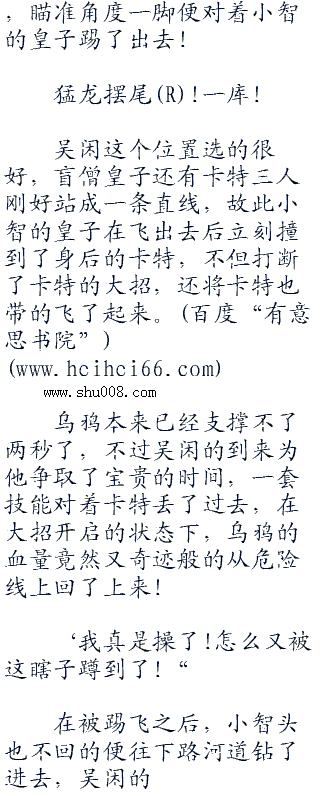 ，瞄准角度一脚便对着小智
的皇子踢了出去！
猛龙摆尾(R)！一库！
吴闲这个位置选的很
好，盲僧皇子还有卡特三人
刚好站成一条直线，故此小
智的皇子在飞出去后立刻撞
到了身后的卡特，不但打断
了卡特的大招，还将卡特也
带的飞了起来。(百度“有意
思书院”)
(www.hcihci66.com)
www.shu008.com
乌鸦本来已经支撑不了
两秒了，不过吴闲的到来为
他争取了宝贵的时间，一套
技能对着卡特丢了过去，在
大招开启的状态下，乌鸦的
血量竟然又奇迹般的从危险
线上回了上来！
‘我真是操了！怎么又被
这瞎子蹲到了！“
在被踢飞之后，小智头
也不回的便往下路河道钻了
进去，吴闲的